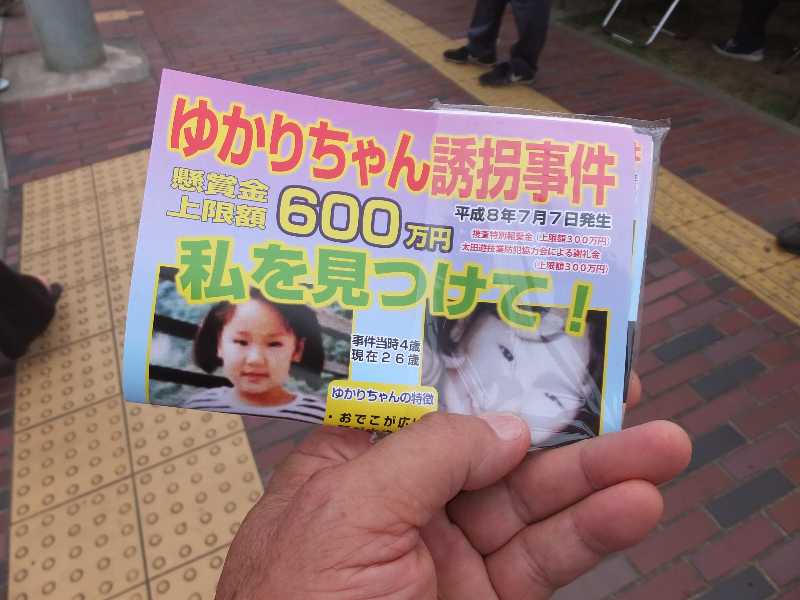 ゆかりちゃん誘拐事件
懸賞金
上限額
600万円
平成8年7月7日発生
捜査特別報奨金(上限額300万円)
太田遊技業防犯協力会による謝礼金
(上限額300万円)
私を見つけて!
事件当時4歳
現在26歳
ゆかりちゃんの特徴
・おでこが広い